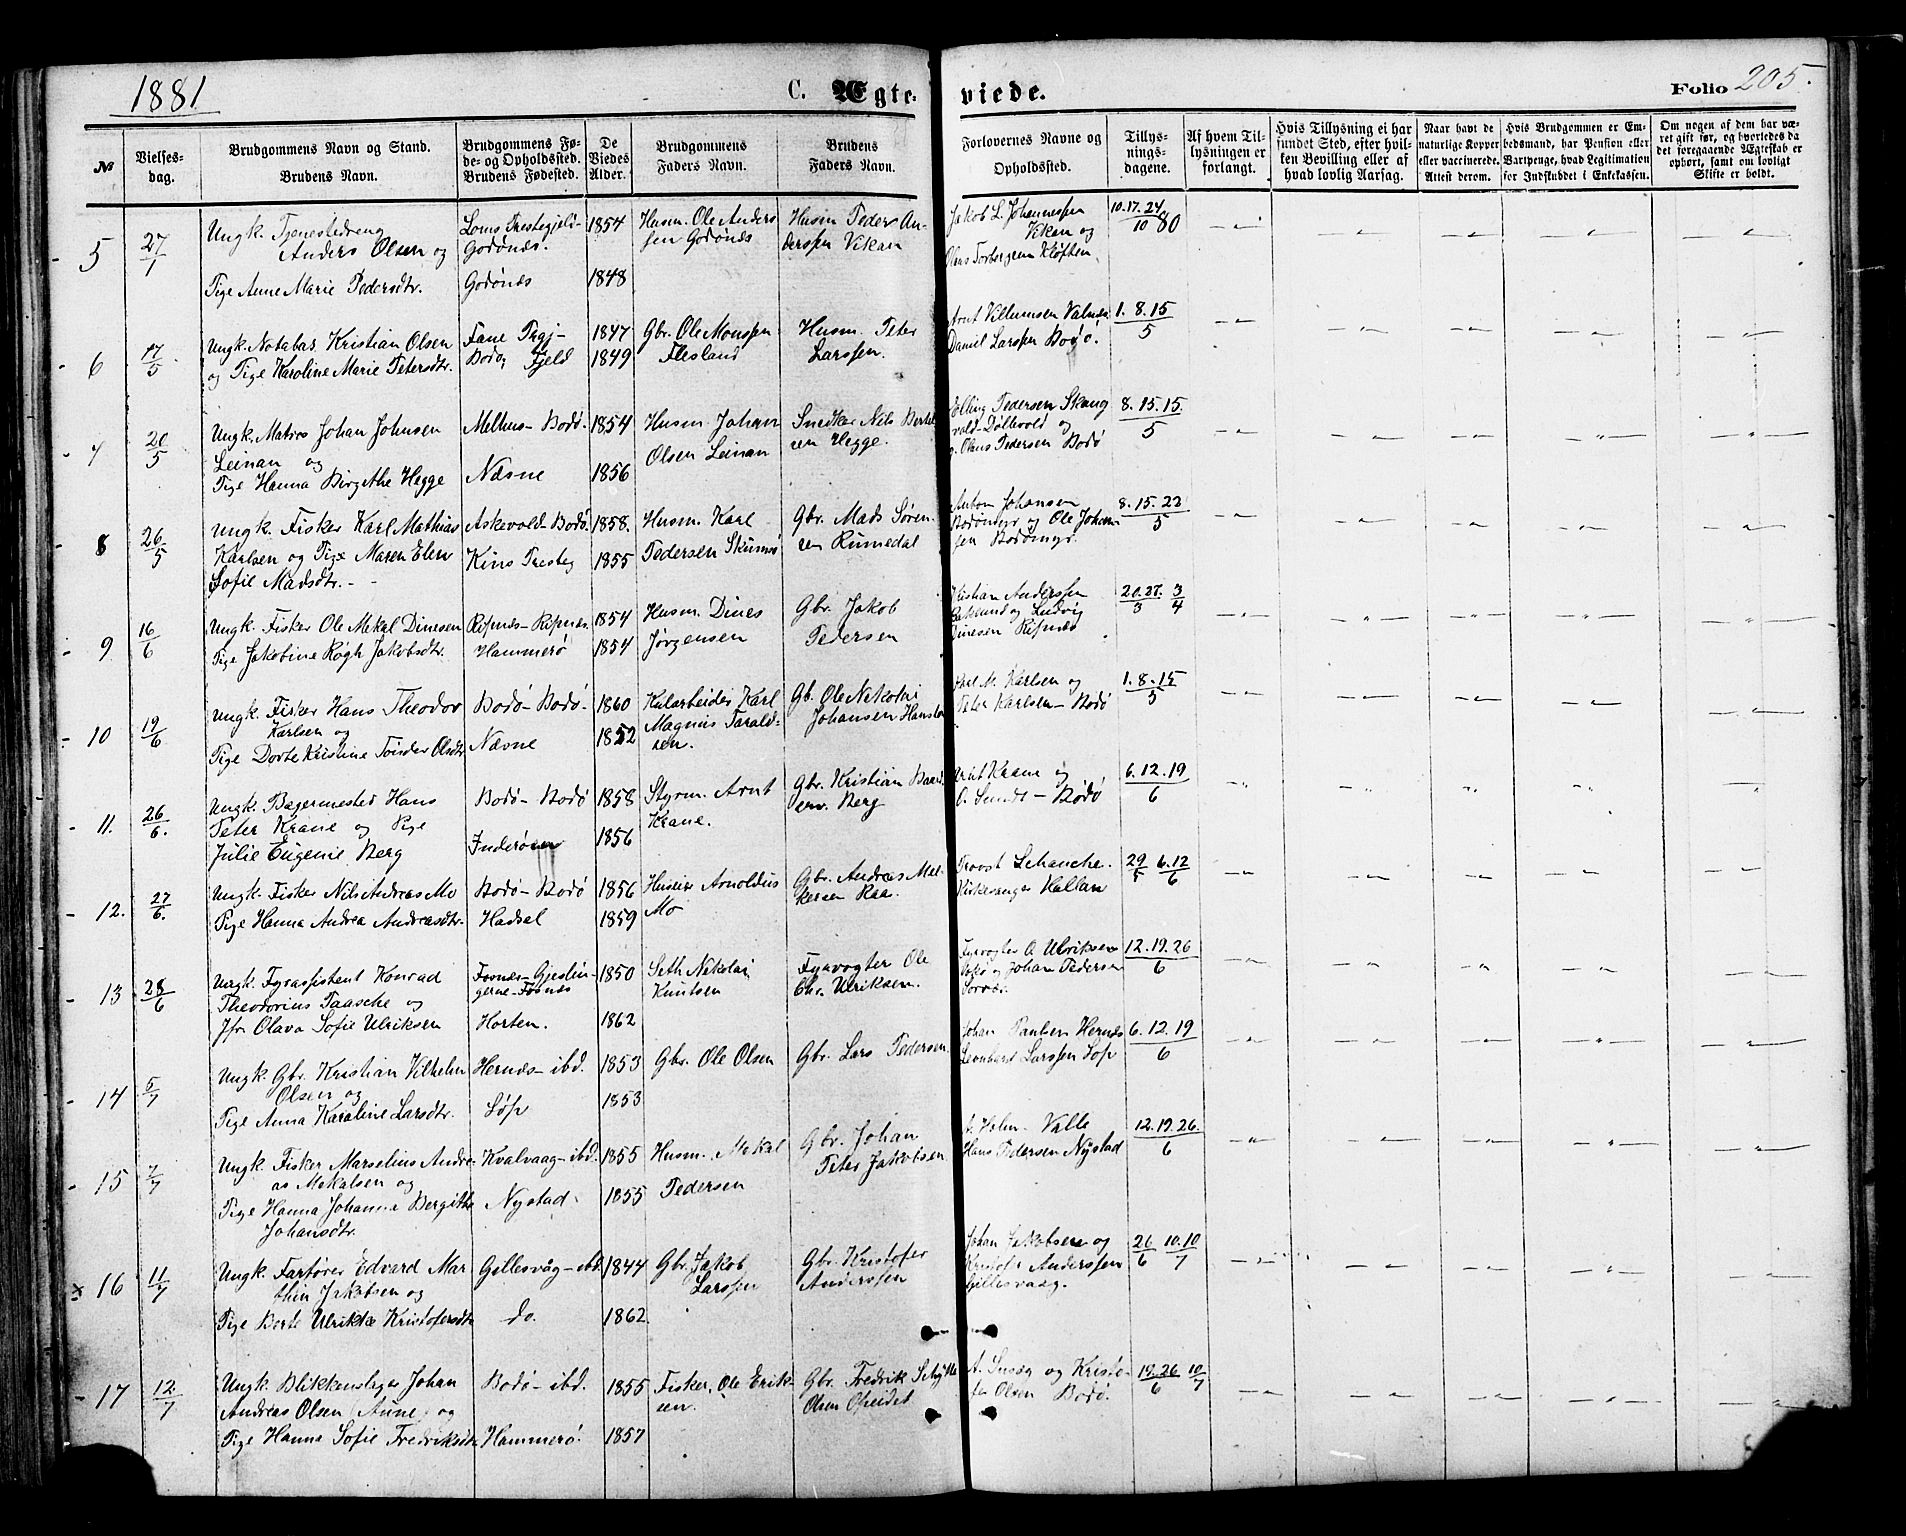 1881
C. Ægteviede.
Folio 205.
No
Vielses-
dag.
Brudgommens Navn og Stand.
Brudens Navn.
Brudgommens Fø-
de- og Opholdssted.
Brudens Fødested.
De
Viedes
Alder.
Brudgommens
Faders Navn.
Brudens
Faders Navn.
Forlovernes Navne og
Opholdssted.
Tillys-
nings-
dagene.
Af hvem Til-
lysningen er
forlangt.
Hvis Tillysning ei har
fundet Sted, efter hvil-
ken Bevilling eller af
hvad lovlig Aarsag.
Naar havt de
naturlige Kopper
eller vaccinerede.
Attest derom.
Hvis Brudgommen er Em-
bedsmand, har Pension eller
Vartpenge, hvad Legitimation
for Indskuddet i Enkekassen.
Om nogen af dem har væ-
ret gift før, og hvorledes da
det foregaaende Ægteskab er
ophørt, samt om lovligt
Skifte er holdt.
5 27/1
Ungk. Tjenestedreng
Anders Olsen og
Tige Anne Marie Pedersdtr.
Loms Prestegjeld-
Godønes.
Godønes
1854
1848
Husm. Ole Anders
sen Godønes
Husm Peder An-
derssen Vikan
Jakob L. Johannessen
Vikan og
Kløften
10. 17. 24/10 80
6 17/5
Ungk. Notabar. Kristian Olsen
og Pige Karoline Marie Petersdtr.
Fane Prgj-
Bodø, Fjeld
1847
1849
Gbr. Ole Monssen
Flesland
Husm. Peter
Larssen.
Arnt Villumsen Valnes
Daniel Larssen Bodø.
1. 8. 15/5
7 20/5
Ungk. Matros Johan Johnsen
Leinan og
Pige Hanna Birgethe Hegge
Melhus- Bodø.
Næsne
1854
1856
Husm. Johan
Olsen Leinan
Snedker Nils Bertel
sen Hegge.
Elling Pedersen Skang
vold- og
Olaus Pedersen Bodø
8. 15. 15./5
8 26/5
Ungk. Fisker Karl Mathias
Karlsen og Pige Maren Elen
Sofie Madsdtr. -
Askevold- Bodø.
Kins Presteg
1858.
1855
Husm. Karl
Pedersen
Gbr. Mads Søren-
sen Rumedal
Anton Johansen
Bodømyr og Ole Johan
sen Bodømyr.
8. 15. 22/5
9 16/6
Ungk. Fisker Ole Mekal Dinesen
Pige Jakobine Røgh Jakobsdtr.
Ripnæs- Ripnæs.
Hammerø
1854
1854
Husm. Dines
Jørgensen
Gbr. Jakob
Pedersen
Kristian Anderssen
og Ludvig
Dinesen Ripnæs
20. 27./3 3/4
10 19/6
Ungk. Fisker Hans Theodor
Karlsen og
Pige Dorte Kristine Tønder Olsdtr
Bodø- Bodø-
Næsne
1860
1852
Kularbeider Karl
Magnus Tarald-
sen.
Gb. Ole Nikolai
Johansen
Karl M. Karlsen og
Peter Karlsen- Bodø
1. 8. 15/5
11. 26/6.
Ungk. Bagermester Hans
Peter Krane og Pige
Julie Eugenie Berg
Bodø- Bodø
Inderøen
1858
1856
Styrm. Arnt
Krane.
Gbr. Kristian
Berg
Arnt Krane og
O. Sundt- Bodø
6. 12. 19/6
12. 27/6.
Ungk. Fisker Nils Andreas Mo
Pige Hanna Andrea Andreasdtr.
Bodø- Bodø
Hadsel
1856
1859
Huseier Arnoldus
Mo
Gbr. Andreas Mel-
kersen Raa.
Provst Schanche.
Kirkesanger Hallan
29/5 6. 12/6
13 28/6
Ungk. Fyrassistent Konrad
Theodorius Paasche og
Jfr. Olava Sofie Ulriksen
Fosnæs- Gjeslin-
gerne- Fosnæs
Horten.
1850
1862
Seth Nikolai
Knutsen
Fyrvogter Ole
Chr. Ulriksen.
Fyrvogter O. Ulriksen
og Johan Pedersen
12. 19. 26/6
14 5/7
Ungk. Gbr. Kristian Vilhelm
Olsen og
Pige Anna Karoline Larsdtr.
Hernæs- ibd.
Løp
1853
1853
Gbr. Ole Olsen
Gbr. Lars Pedersen
Johan Paulsen Hernæs
Leonhard Larssen Løp
6. 12. 19/6
15 7/7
Ungk. Fisker Marselius Andre-
as Mekalsen og
Pige Hanna Johanna Bergitte
Johansdtr.
Kvalvaag- ibd.
Nystad.
1855
1855
Husm. Mekal
Pedersen
Gbr. Johan
Peter Jakobsen
Valle
Hans Pedersen Nystad
12. 19. 26./6
x 16 11/7
Ungk. Farfører Edvard Mar
thin Jakobsen og
Pige Berte Ulrikke Kristofersdtr
Gillesvåg- ibd.
do.
1844
1862
Gbr. Jakob
Larssen
Gbr. Kristofer
Anderssen
Johan Jakobsen og
Kristofer Anderssen
Gillesvaag.
26/6 10. 10/7
17 12/7
Ungk. Blikkenslager Johan
Andreas Olsen (Aune) og
Pige Hanna Sofie Fredriksdtr
Bodø- ibd.
Hammerø.
1855
1857
Fisker, Ole Erik-
sen.
Gbr. Fredrik Schytte
Olsen Opeidet
og Kristo-
fer Olsen Bodø.
19. 26/6 10/7